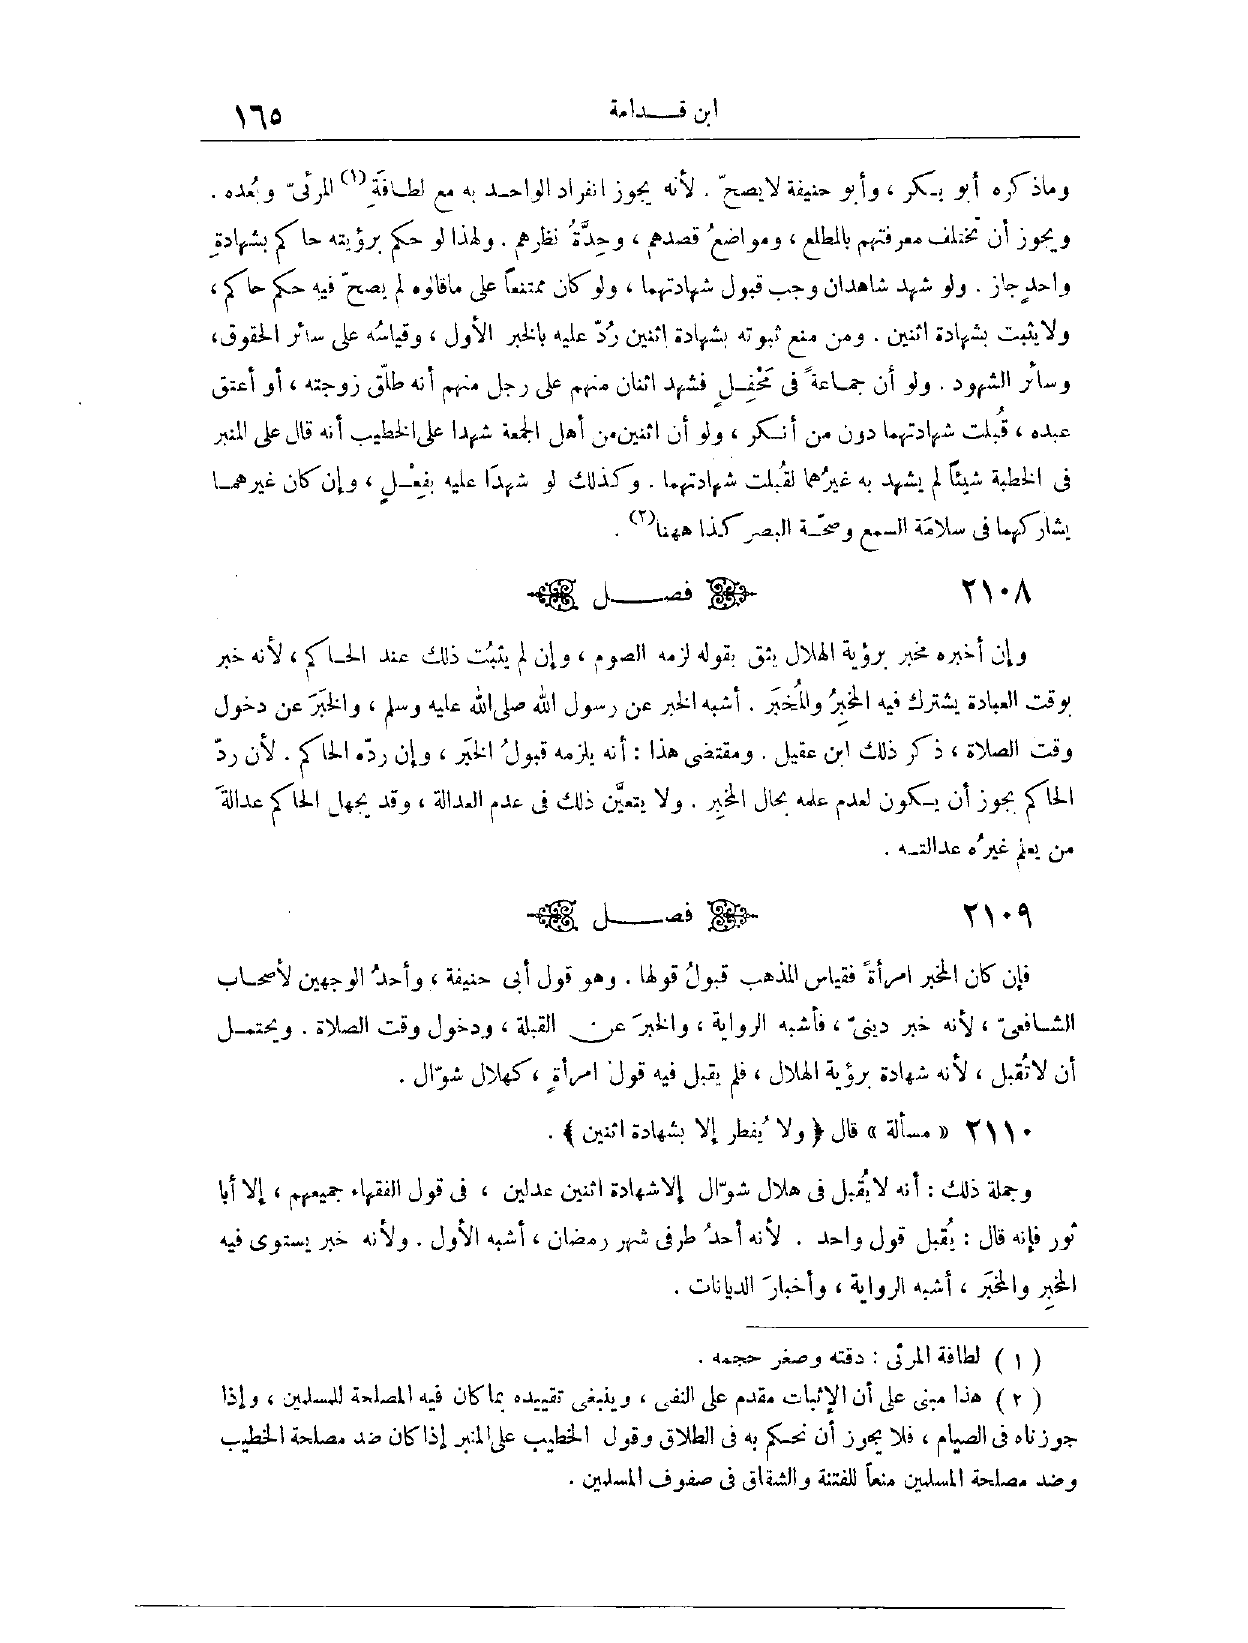 ابن قــدامة
١٦٥
وماذكره أبو بـكر ، وأبو حنيفة لايصحّ . لأنه يجوز انفراد الواحـد به مع لطـافَةِ(١) المرئىّ وبُعده .
ويجوز أن تختلف معرفتهم بالمطلع ، ومواضعُ قصدهم ، وحِدَّةُ نظرهم . ولهذا لو حكم برؤيته حاكم بشهادةِ
واحدٍ جاز . ولو شهد شاهدان وجب قبول شهادتهما ، ولو كان ممتنعاً على ماقالوه لم يصحّ فيه حكم حاكم ،
ولايثبت بشهادة اثنين . ومن منع ثبوته بشهادة اثنين رُدّ عليه بالخبر الأول ، وقياسُه على سائر الحقوق،
وسائر الشهود . ولو أن جمـاعةً فى مَحْفِـلٍ فشهد اثنان منهم على رجل منهم أنه طلّق زوجته ، أو أعتق
عبده ، قُبلت شهادتهما دون من أنـكر ، ولو أن اثنين من أهل الجمعة شهدا على الخطيب أنه قال على المنبر
فى الخطبة شيئاً لم يشهد به غيرُهما لقُبلت شهادتهما . وكذلك لو شهدَا عليه بفِعْـلٍ ، وإن كان غيرهمـا
يشاركهما فى سلامَة السمع وصحّـة البصر كذا ههنا(٢) .
٢١٠٨ فصــل
وإن أخبره مخبر برؤية الهلال يثق بقوله لزمه الصوم ، وإن لم يثبُت ذلك عند الحـاكم ، لأنه خبر
بوقت العبادة يشترك فيه المخبِرُ والمُخبَر . أشبه الخبر عن رسول الله صلى الله عليه وسلم ، والخبَرَ عن دخول
وقت الصلاة ، ذكر ذلك ابن عقيل . ومقتضى هذا : أنه يلزمه قبولُ الخبَر ، وإن ردّه الحاكم . لأن ردّ
الحاكم يجوز أن يـكون لعدم علمه بحال المخبِر . ولا يتعيَّن ذلك فى عدم العدالة ، وقد يجهل الحاكم عدالةَ
من يعلم غيرُه عدالتـه .
٢١٠٩ فصــل
فإن كان المخبر امرأةً فقياس المذهب قبولُ قولها . وهو قول أبى حنيفة ، وأحدُ الوجهين لأصحـاب
الشـافعىّ ، لأنه خبر دينىّ ، فأشبه الرواية ، والخبرَ عن القبلة ، ودخول وقت الصلاة . ويحتمـل
أن لاتُقبل ، لأنه شهادة برؤية الهلال ، فلم يقبل فيه قول امرأةٍ ، كهلال شوّال .
٢١١٠ « مسألة » قال ﴿ ولا يُفطر إلا بشهادة اثنين ﴾ .
وجملة ذلك : أنه لايُقبل فى هلال شوّال إلاشهادة اثنين عدلين ، فى قول الفقهاء جميعهم ، إلا أبا
ثور فإنه قال : يُقبل قول واحد . لأنه أحدُ طرفى شهر رمضان ، أشبه الأول . ولأنه خبر يستوى فيه
المخبِر والمخبَر ، أشبه الرواية ، وأخبارَ الديانات .
( ١ ) لطافة المرئى : دقته وصغر حجمه .
( ٢ ) هذا مبنى على أن الإثبات مقدم على النفى ، وينبغى تقييده بما كان فيه المصلحة للمسلمين ، وإذا
جوزناه فى الصيام ، فلا يجوز أن نحـكم به فى الطلاق وقول الخطيب على المنبر إذا كان ضد مصلحة الخطيب
وضد مصلحة المسلمين منعاً للفتنة والشقاق فى صفوف المسلمين .